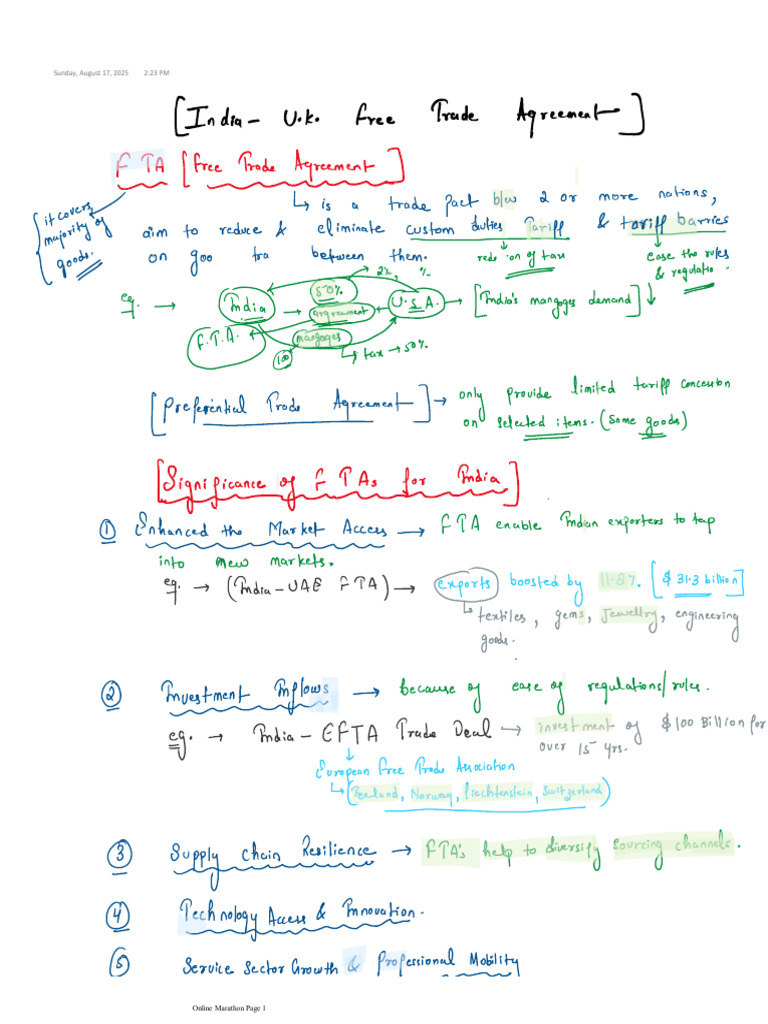 Sunday, August 17, 2025 2:23 PM
[India - U.K. Free Trade Agreement]
FTA [Free Trade Agreement]
↳ is a trade pact b/w 2 or more nations,
{it covers majority of goods.
aim to reduce & eliminate custom duties Tariff & tariff barries
on goo tra between them.
↓ redu on of tax
↓ ease the rules & regulatio .
eg. → India → 50% agreement U.S.A. → [India's mangoes demand] ↓
→ 2%, %
F.T.A.
mangoges
100
↳ tax → 50%
[Preferential Trade Agreement] → only provide limited tariff concession
on selected items. (some goods)
[Significance of FTAs for India]
① Enhanced the Market Access → FTA enable Indian exporters to tap
into new markets.
eg. → (India-UAE FTA) → exports boosted by 11.8%. [$ 31.3 billion]
↳ textiles, gems, Jewellry, engineering
goods.
② Investment Inflows → because of ease of regulations/rules.
eg. → India - EFTA Trade Deal → investment of $100 Billion for
over 15 yrs.
↓
European Free Trade Association
↳ (Iceland, Norway, Liechtenstein, Switzerland)
③ Supply Chain Resilience → FTA's help to diversify sourcing channels.
④ Technology Access & Innovation.
⑤ Service Sector Growth & Professional Mobility
Online Marathon Page 1